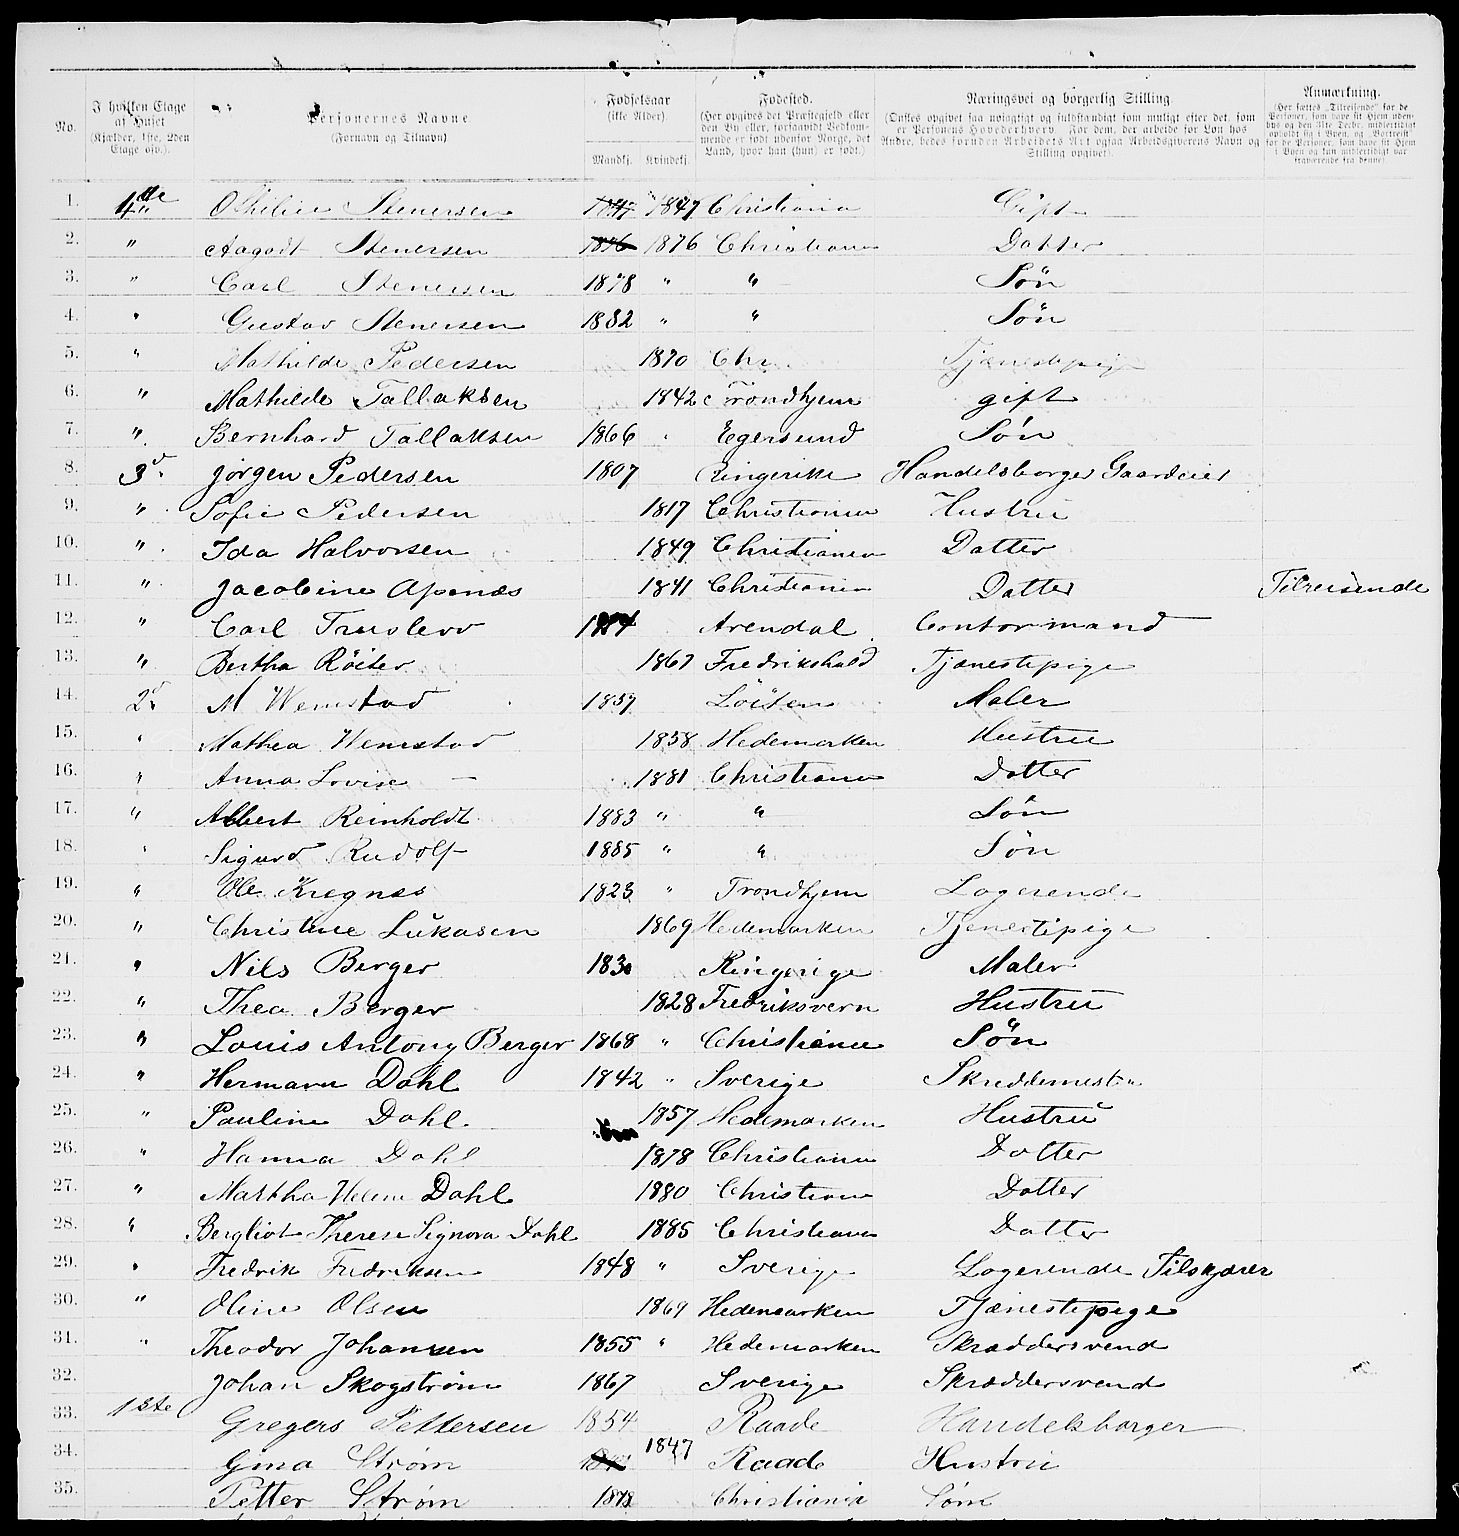 No. I hvilken Etage af Huset (Kjælder, 1ste, 2den Etage osv.). Personernes Navne (Fornavn og Tilnavn) Fødselsaar (ikke Alder). Mandkj. Kvindekj. Fødested. (Her opgives det Præstegjeld eller den By eller, forsaavidt Vedkommende er født udenfor Norge, det Land, hvor han (hun) er født.) Næringsvei og borgerlig Stilling. (Ønskes opgivet saa nøiagtigt og fuldstændigt som muligt efter det, som er Personens Hovederhverv. For dem, der arbeide for Løn hos Andre, bedes foruden Arbeidets Art ogsaa Arbeidsgiverens Navn og Stilling opgivet). Anmærkning. (Her sættes „Tilreisende" for de Personer, som have sit Hjem udenbys og den 31te Decbr. midlertidigt opholdt sig i Byen, og „Bortreist" for de Personer, som have sit Hjem i Byen og kun midlertidigt var fraværende fra denne)
1. 4de Othilie Stenersen 1847 Christiania Gift
2. " Aagodt Stenersen 1876 1876 Christiania Datter
3. " Carl Stenersen 1878 " " Søn
4. " Gustav Stenersen 1882 " " Søn
5. " Mathilde Pedersen 1870 Chr. Tjenestepige
6. " Mathilde Tallaksen 1842 Trondhjem gift
7. " Bernhard Tallaksen 1866 Egersund Søn
8. 3d. Jørgen Pedersen 1807 Ringerike Handelsborger Gaardeier
9. " Sofie Pedersen 1817 Christiania Hustru
10. " Ida Halvorsen 1849 Christiania Datter
11. " Jacobine Apenæs 1841 Christiania Datter Tilreisende
12. " Carl Truslevv Arendal Contormand
13. " Bertha Röiter 1867 Fredrikshald Tjænestepige
14. 2d. M Wemstad 1857 Löiten Maler
15. " Mathea Wemstad 1858 Hedemarken Hustru
16. " Anna Lovise — 1881 Christiania Datter
17. " Albert Reinholdt 1883 " " Søn
18. " Sigurd Rudolf 1885 " " Søn
19. " Ole Kregnes 1823 " Trondhjem Logerende
20. " Christine Lukasen 1869 Hedemarken Tjenestepige
21. " Nils Berger 1830 Ringerige Maler
22. " Thea Berger 1828 Fredriksvern Hustru
23. " Louis Antony Berger 1868 " Christiania Søn
24. " Hermann Dahl 1842 " Sverige Skreddemester
25. " Pauline Dahl 1857 Hedemarken Hustru
26. " Hanna Dahl 1878 Christiania Datter
27. " Martha Helene Dahl 1880 Christiania Datter
28. " Bergliot Therese Signora Dahl 1885 Christiania Datter
29. " Fredrik Fredriksen 1848 " Sverige Logerende Tilskjærer
30. " Oline Olsen 1869 Hedemarken Tjænestepige
31. " Theodor Johansen 1855 " Hedemarken Skræddersvend
32. Johan Skogstrøm 1867 Sverige Skræddersvend
33. 1ste Gregers Pettersen 1854 Raade Handelsborger
34. Gina Strøm 1847 Raade Hustru
35. Petter Strøm 1878 Christiania Søn